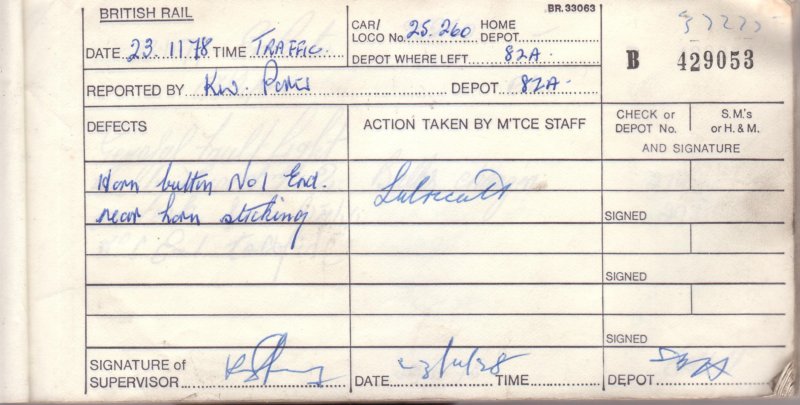 BRITISH RAIL
BR.33063
DATE 23.11.78 TIME TRAFFIC.
CAR/ LOCO No. 25.260 HOME DEPOT
DEPOT WHERE LEFT 82A.
B 429053
REPORTED BY K.W. DEPOT 82A.
DEFECTS
ACTION TAKEN BY M'TCE STAFF
CHECK or DEPOT No.
S.M's or H. & M.
AND SIGNATURE
Horn button No1 End.
near horn sticking
Lubricated
SIGNED
SIGNED
SIGNED
SIGNATURE of
SUPERVISOR
DATE 23/11/78 TIME
DEPOT